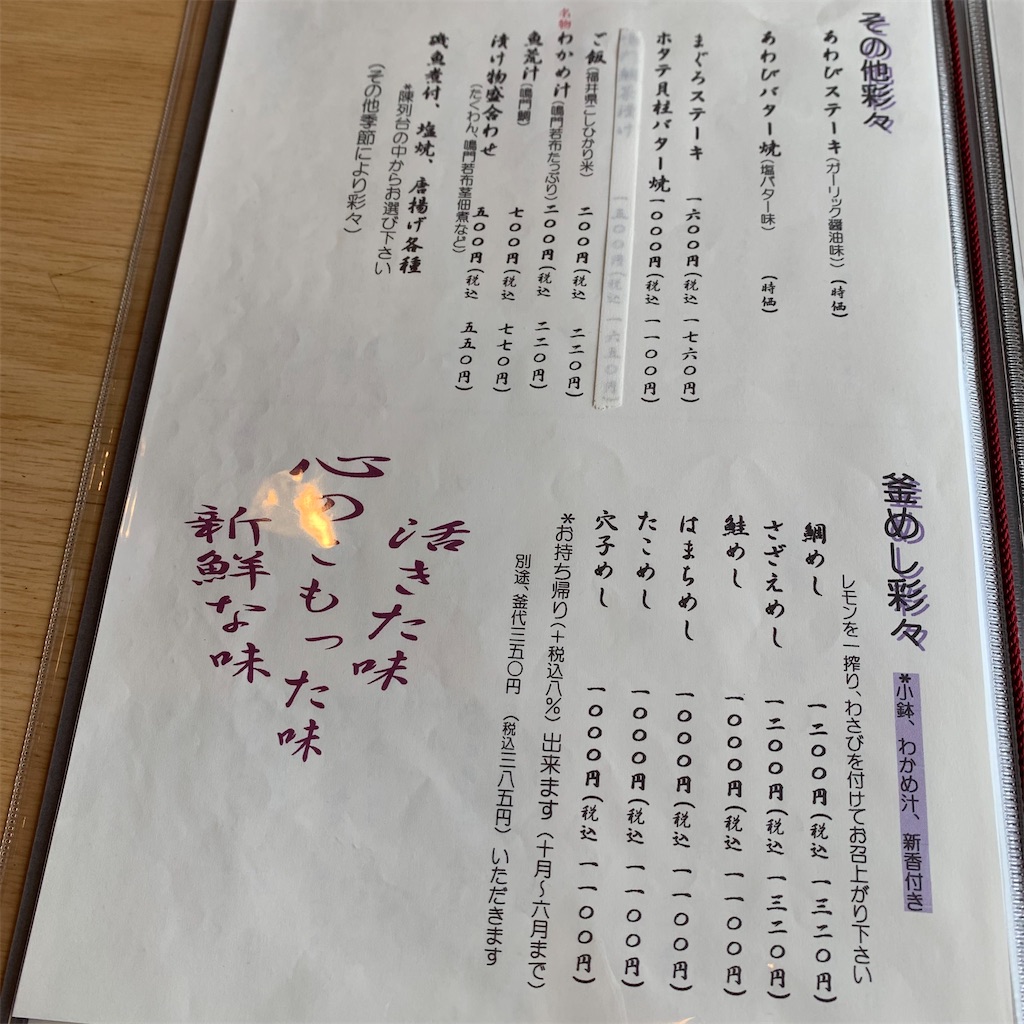 その他彩々
あわびステーキ(ガーリック醤油味) (時価)
あわびバター焼(塩バター味) (時価)
まぐろステーキ 一六〇〇円(税込 一七六〇円)
ホタテ貝柱バター焼 一〇〇〇円(税込 一一〇〇円)
一五〇〇円(税込 一六五〇円)
ご飯(福井県こしひかり米) 二〇〇円(税込 二二〇円)
名物わかめ汁(鳴門若布たっぷり) 二〇〇円(税込 二二〇円)
魚荒汁(鳴門鯛) 七〇〇円(税込 七七〇円)
漬け物盛合わせ 五〇〇円(税込 五五〇円)
(たくわん、鳴門若布茎佃煮など)
磯魚煮付、塩焼、唐揚げ各種
*陳列台の中からお選び下さい
(その他季節により彩々)
釜めし彩々 *小鉢、わかめ汁、新香付き
レモンを一搾り、わさびを付けてお召上がり下さい
鯛めし 一二〇〇円(税込 一三二〇円)
さざえめし 一二〇〇円(税込 一三二〇円)
鮭めし 一〇〇〇円(税込 一一〇〇円)
はまちめし 一〇〇〇円(税込 一一〇〇円)
たこめし 一〇〇〇円(税込 一一〇〇円)
穴子めし 一〇〇〇円(税込 一一〇〇円)
*お持ち帰り(+税込八%)出来ます(十月~六月まで)
別途、釜代三五〇円 (税込三八五円) いただきます
活きた味
心のこもった味
新鮮な味